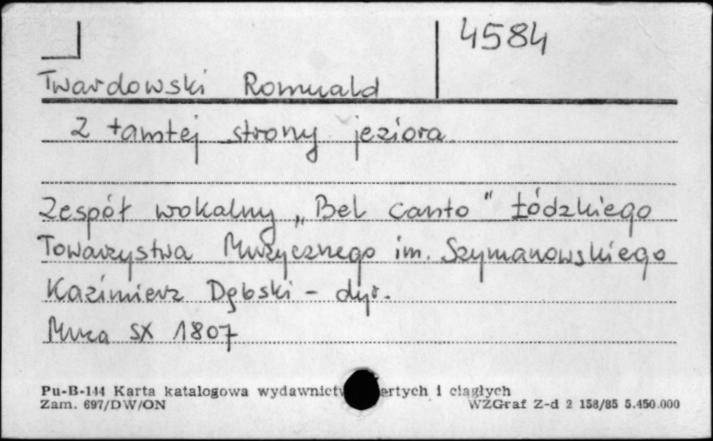 4584
Twardowski Romuald
Z tamtej strony jeziora
Zespół wokalny „Bel canto" Łódzkiego
Towarzystwa Muzycznego im. Szymanowskiego
Kazimierz Dębski - dyr.
Muza SX 1807
Pu-B-144 Karta katalogowa wydawnictw ertych i ciągłych
Zam. 697/DW/ON WZGraf Z-d 2 158/85 5.450.000